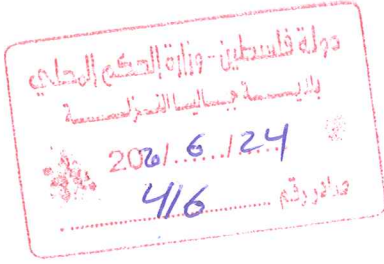 دولة فلسطين - وزارة الحكم المحلي
بلديـــة جباليا النزلـــة
2026/6/24
صادر رقم 416